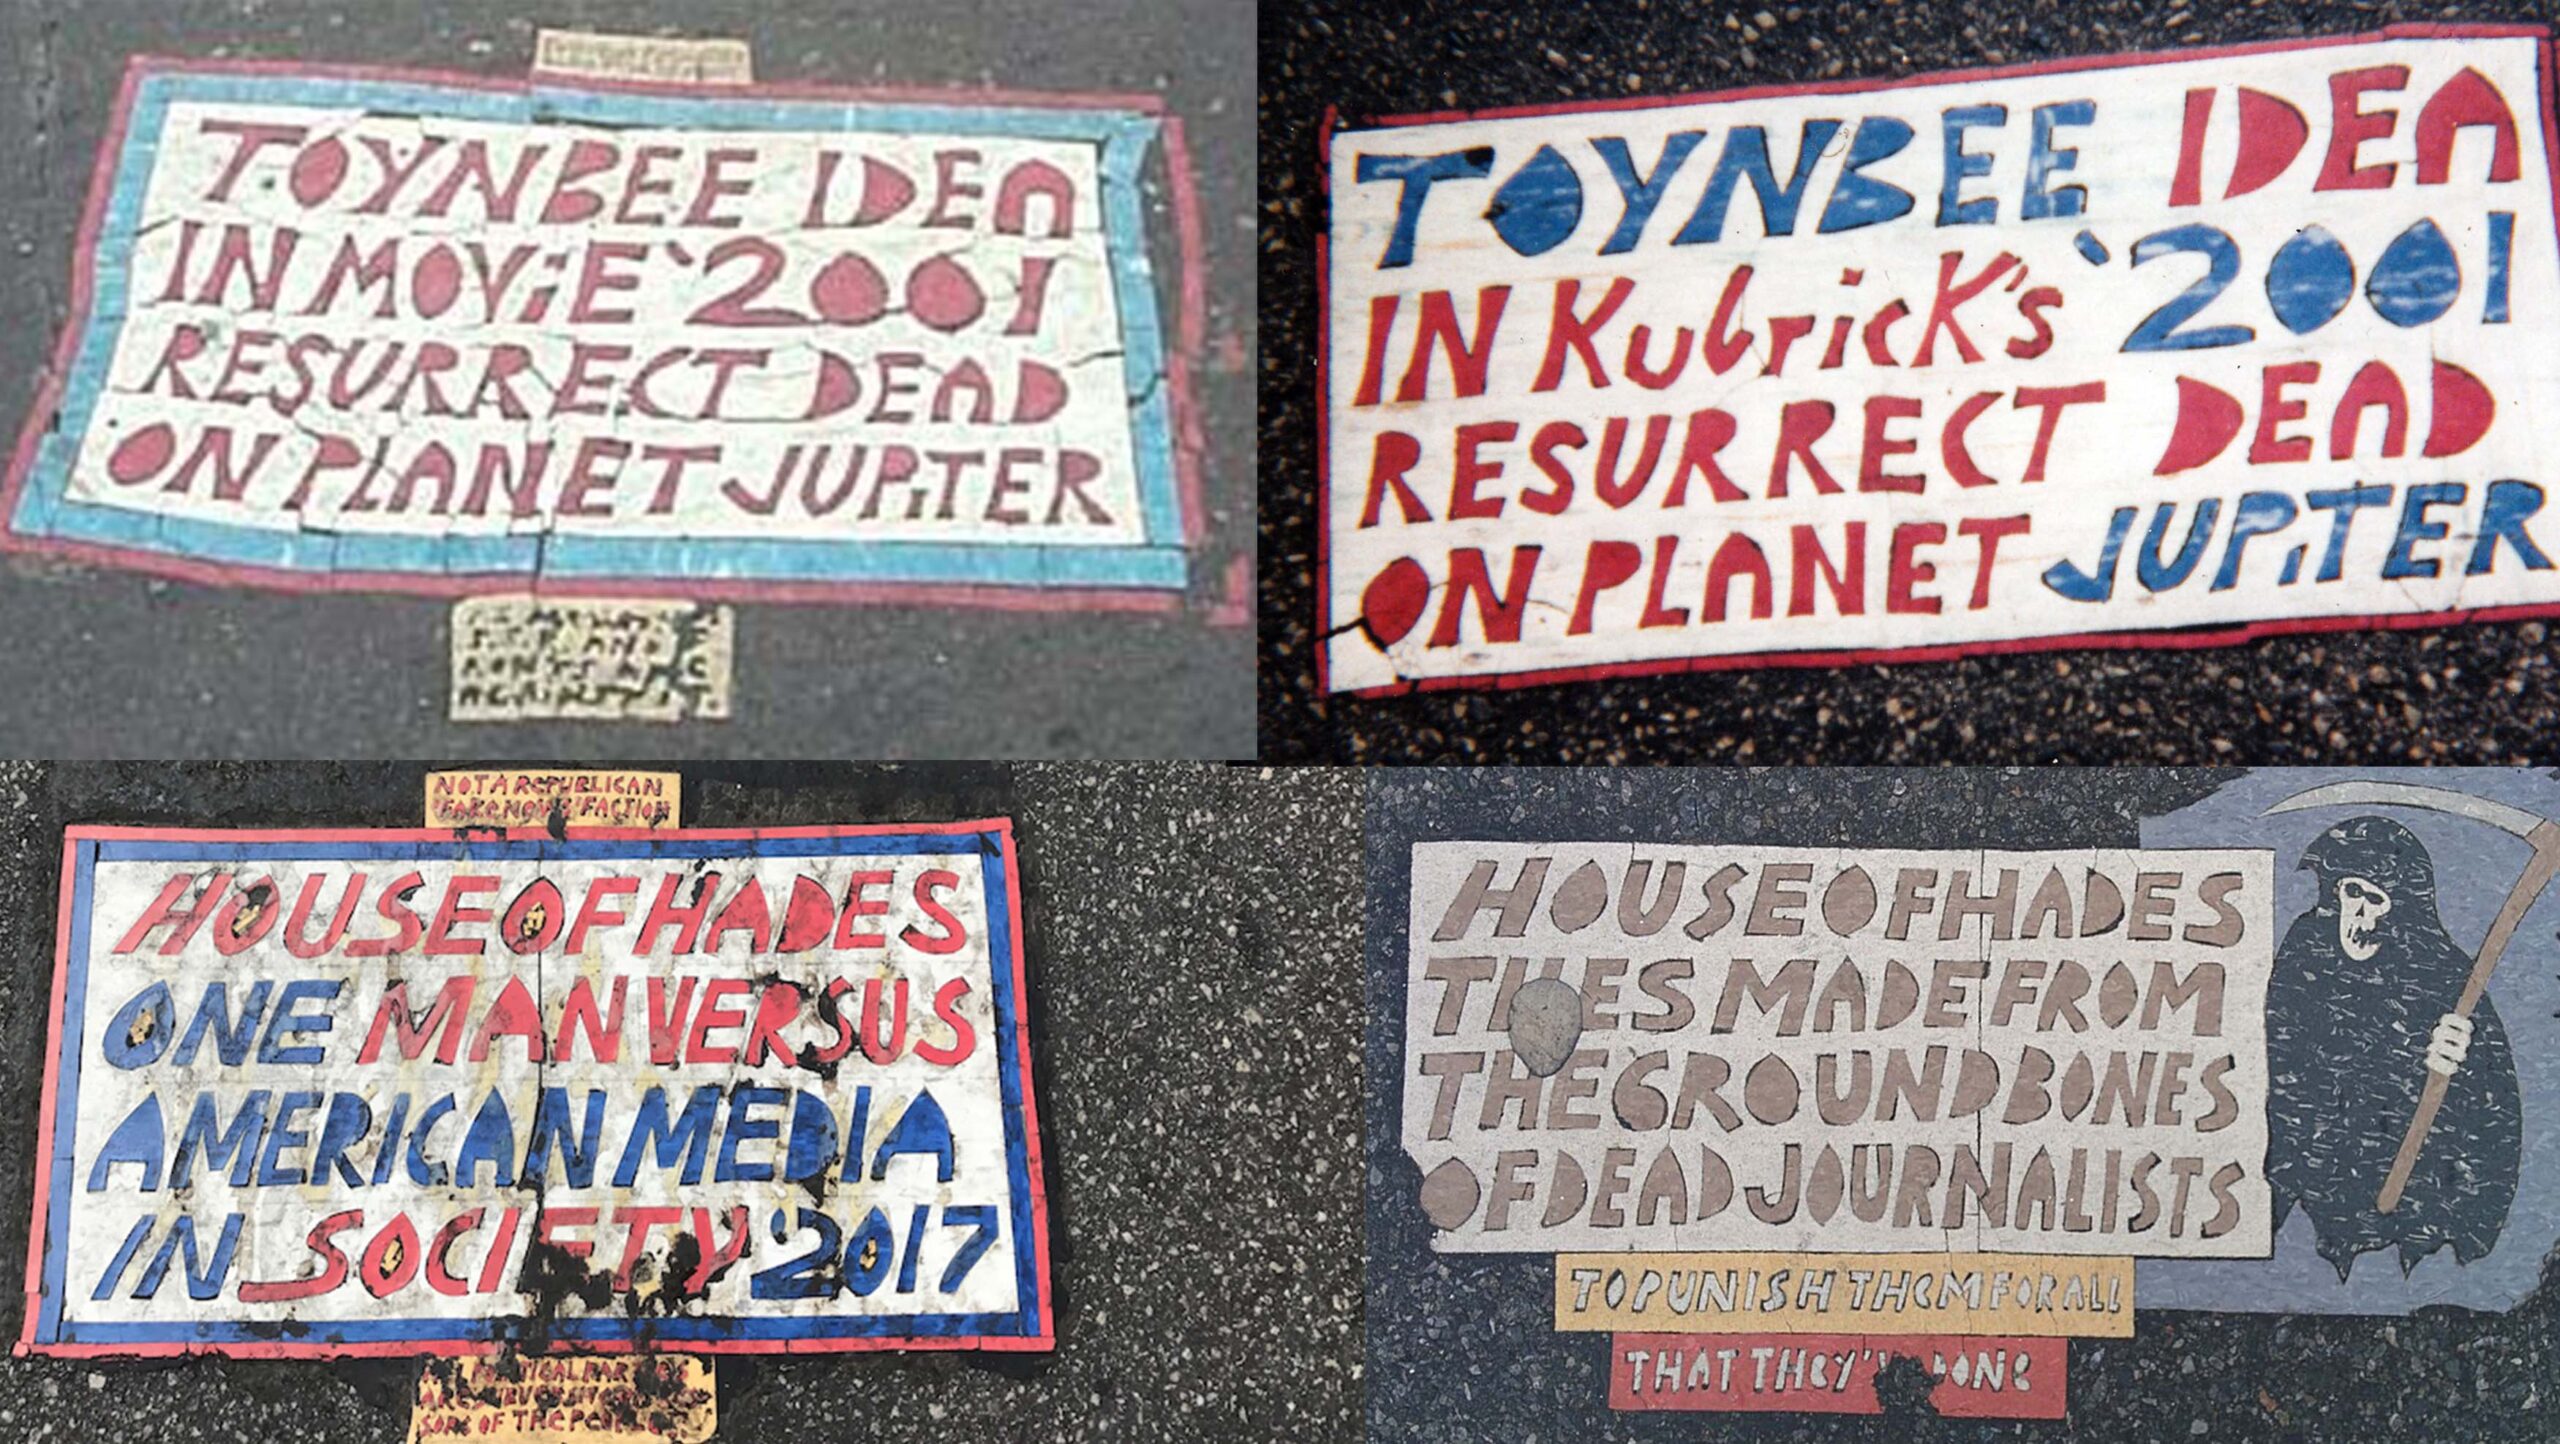 TOYNBEE IDEA
IN MOViE '2001
RESURRECT DEAD
ON PLANET JUPiTER
AGAINST IT.
TOYNBEE IDEA
IN KubricK's '2001
RESURRECT DEAD
ON PLANET JUPiTER
NOT A REPUBLICAN
'FAKE NEWS' FACTION
HOUSE OF HADES
ONE MAN VERSUS
AMERICAN MEDIA
IN SOCIETY '2017
SORS OF THE
HOUSE OF HADES
MADE FROM
THE GROUND BONES
OF DEAD JOURNALISTS
TO PUNISH THEM FOR ALL
THAT